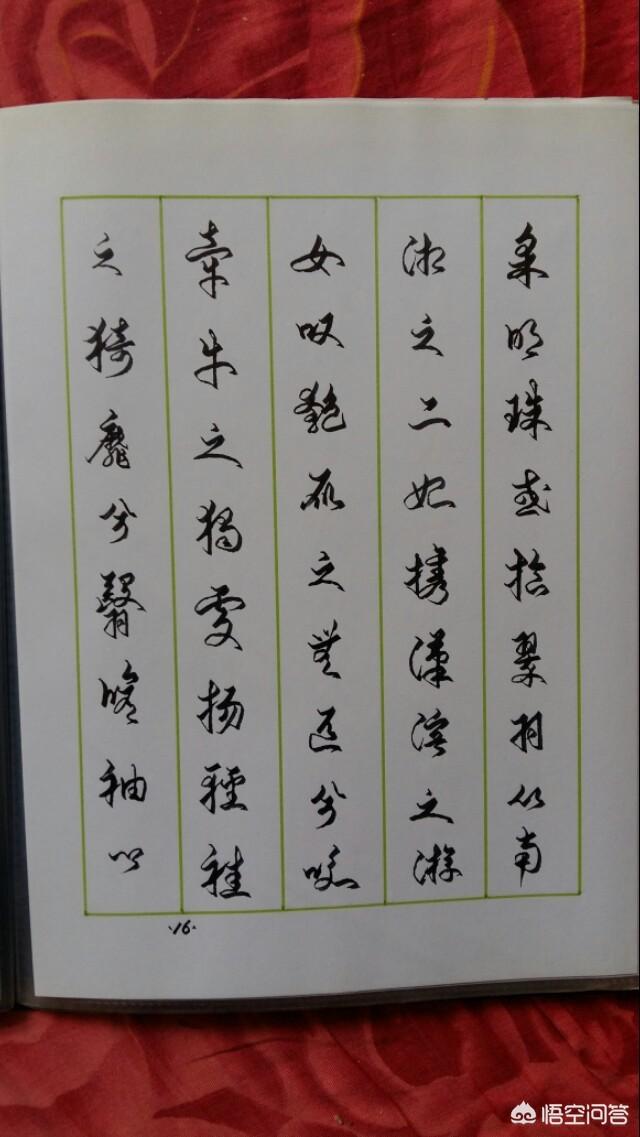 采明珠或拾翠羽从南
湘之二妃携漢濱之游
女叹匏瓜之無匹兮咏
牽牛之獨處扬輕袿
之猗靡兮翳脩袖以
·16·
悟空问答